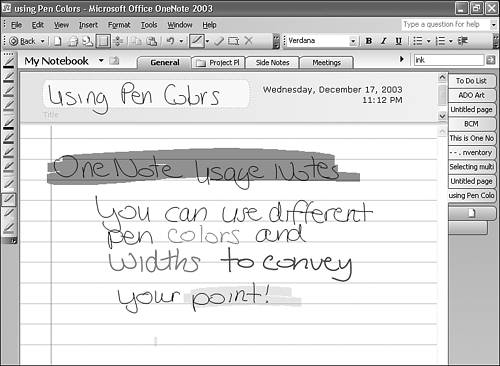 using Pen Colors - Microsoft Office OneNote 2003
File Edit View Insert Format Tools Window Help
Type a question for help
Back
Verdana
B I U
My Notebook
General
Project Pl
Side Notes
Meetings
ink
Using Pen Colors
Title
Wednesday, December 17, 2003
11:12 PM
To Do List
ADO Art
Untitled page
BCM
This is One No
- - . nventory
Selecting multi
Untitled page
using Pen Colo
OneNote Usage Notes
You can use different
pen colors and
widths to convey
your point!